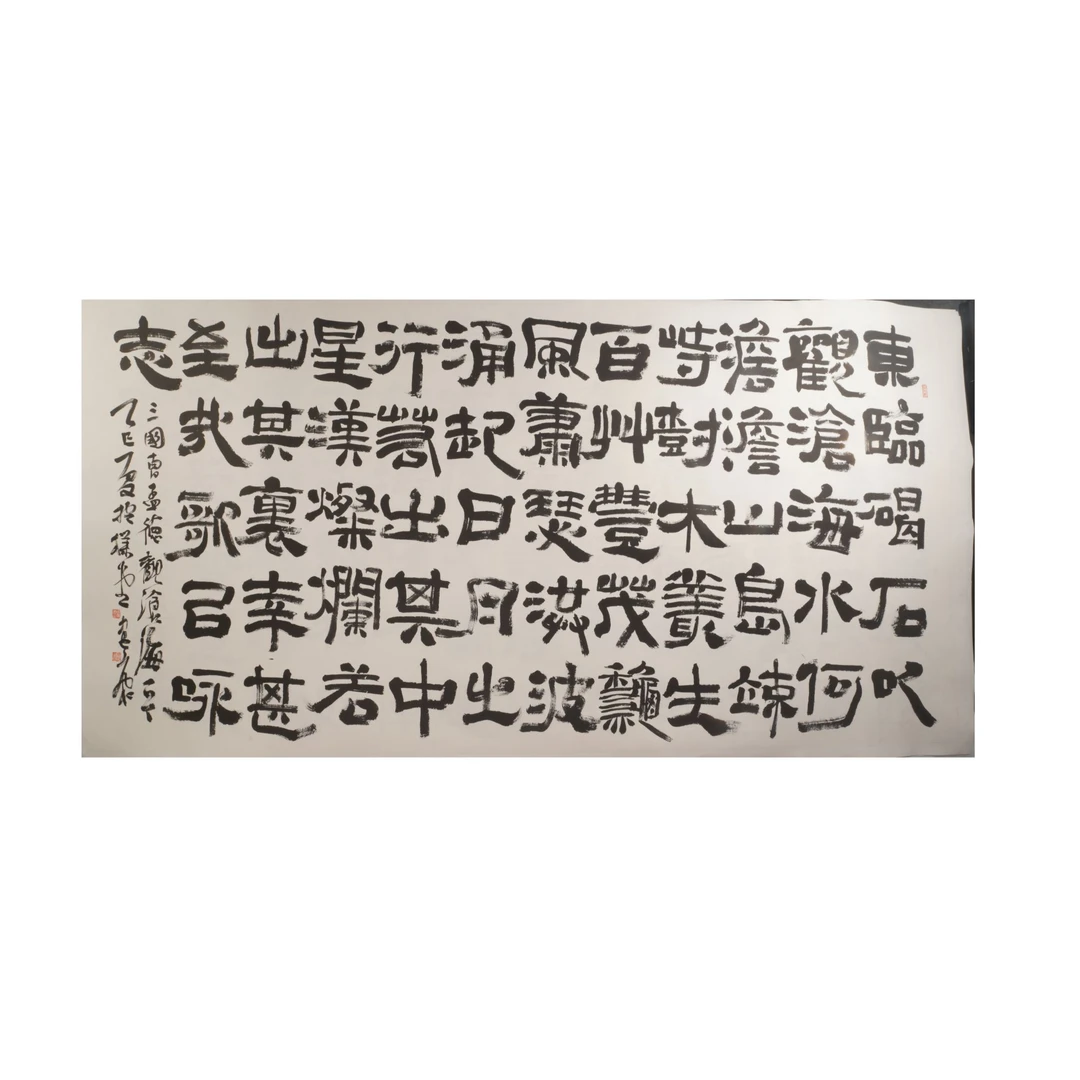 東臨碣石以
觀滄海水何
澹澹山島竦
峙樹木叢生
百艸豐茂龝
風蕭瑟洪波
涌起日月之
行若出其中
星漢燦爛若
出其裏幸甚
至哉歌㠯咏
志
三國曹孟德觀滄海
乙巳夏